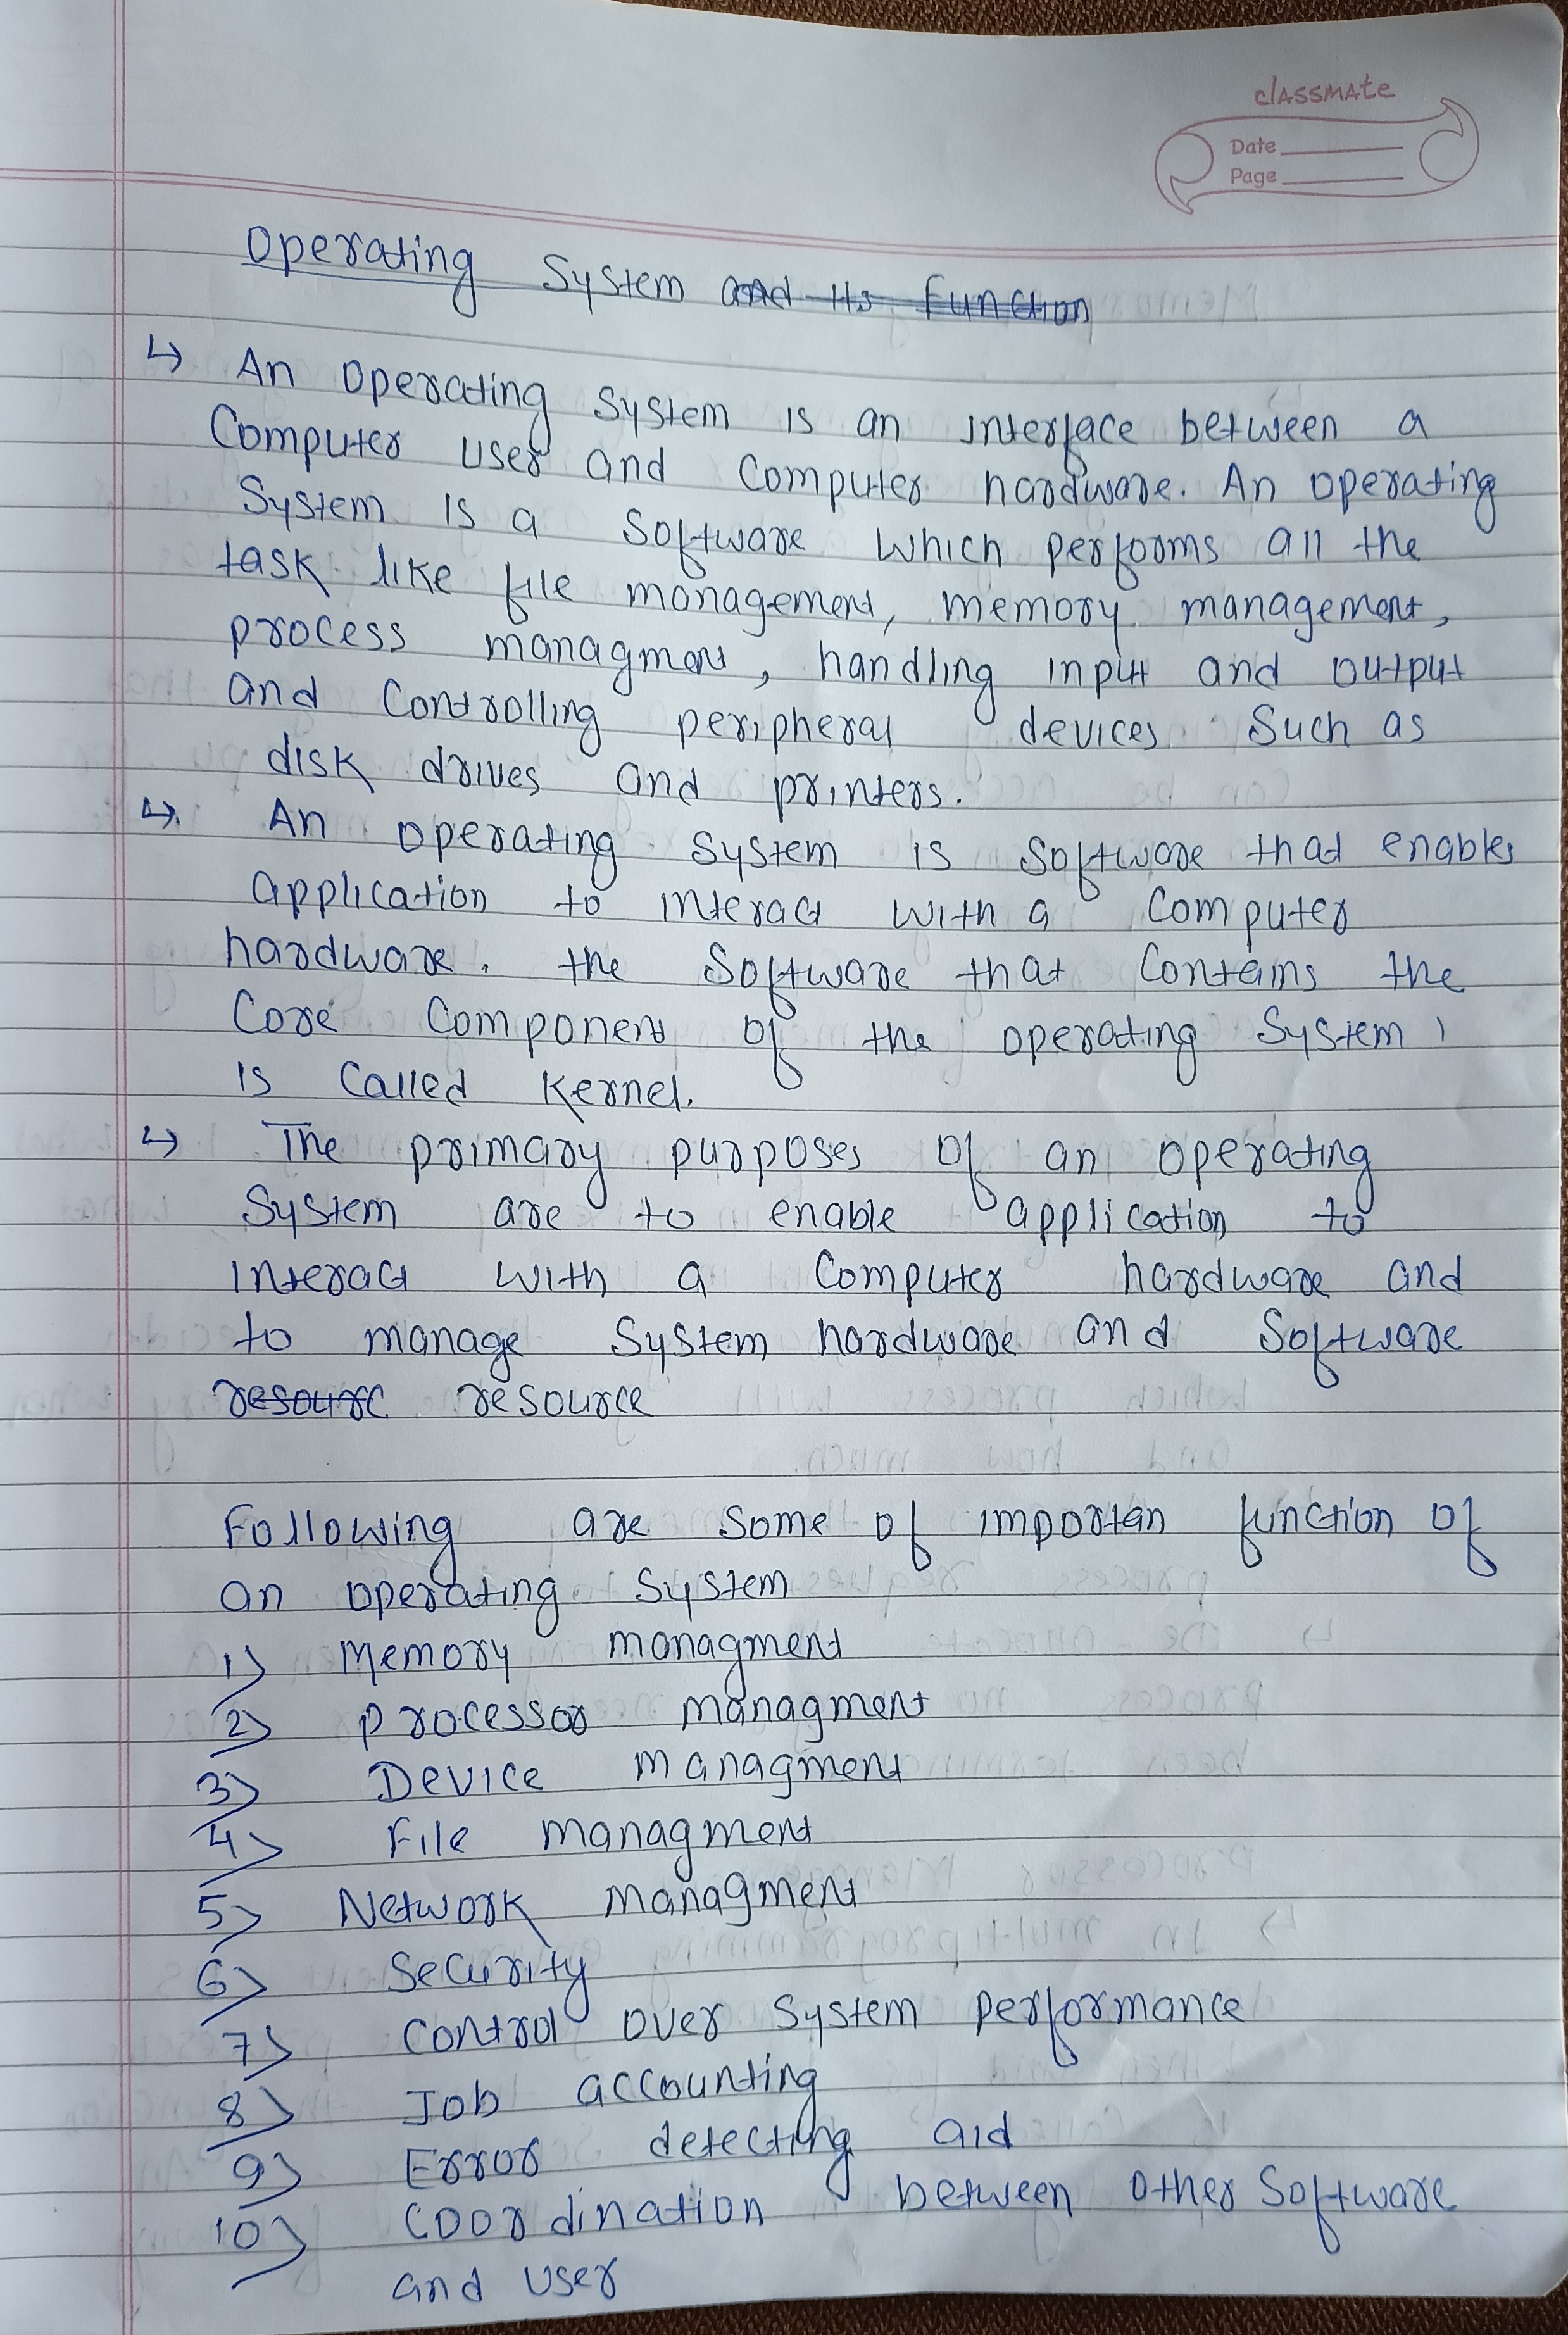 classmate
Date
Page
Operating System and its function
↳ An operating System is an interface between a
Computer user and Computer hardware. An operating
System is a Software which performs all the
task like file management, memory management,
process managment, handling input and output
and Controlling peripheral devices Such as
disk drives and printers.
↳ An operating System is Software that enables
application to interact with a Computer
hardware. the Software that Contains the
Core Component of the operating System
is Called Kernel.
↳ The primary purposes of an operating
System are to enable application to
interact with a Computer hardware and
to manage System hardware and Software
resourc resource
Following are Some of importan function of
an operating System
1) Memory managment
2) processor managment
3) Device managment
4) File managment
5) Network managment
6) Security
7) Control over System performance
8) Job accounting
9) Error detecting aid
10) Coordination between other Software
and user